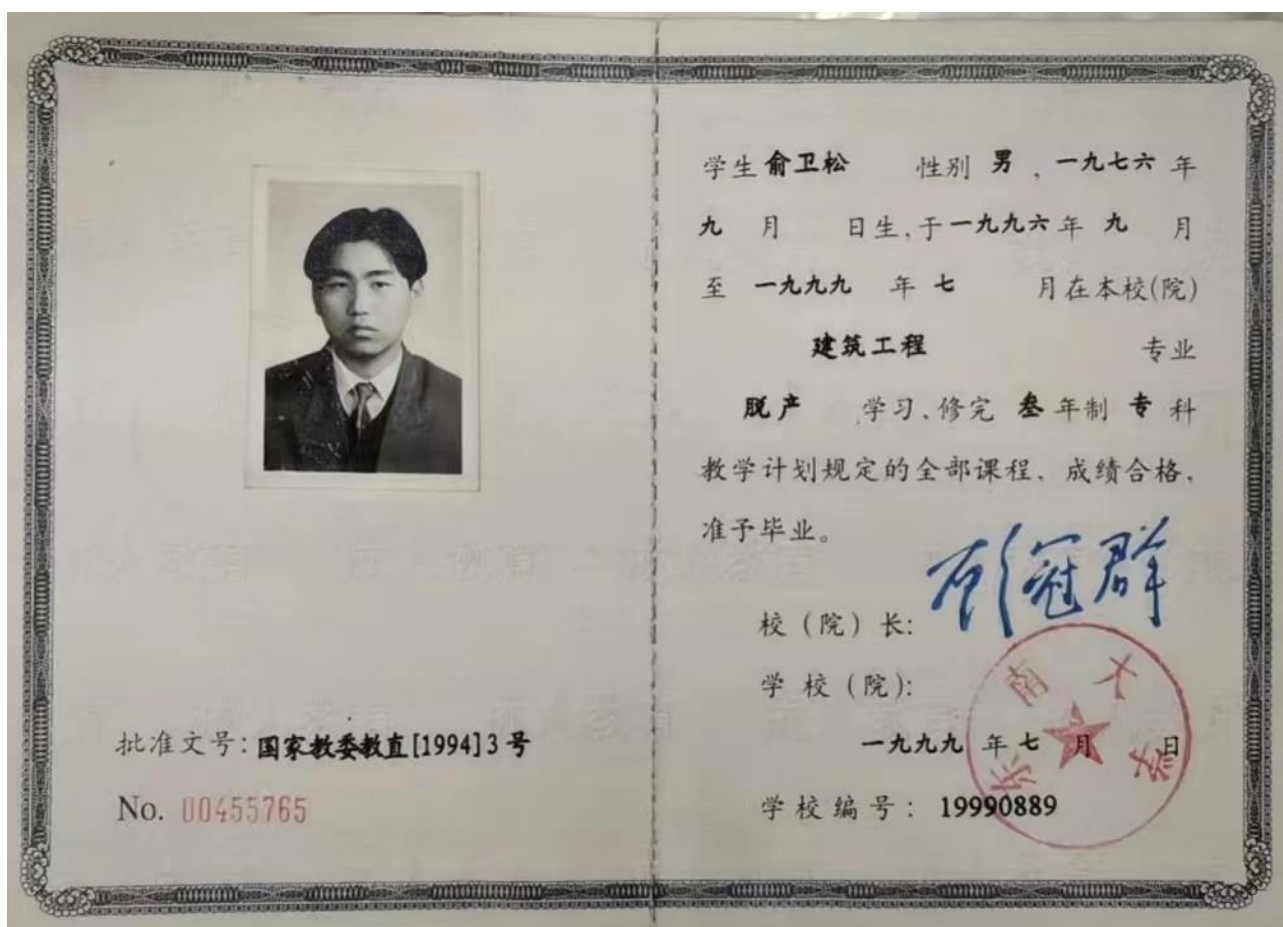 批准文号：国家教委教直[1994]3号
No. 00455765
学生 俞卫松 性别 男，一九七六 年
九 月 日生，于一九九六年 九 月
至 一九九九 年 七 月在本校(院)
建筑工程 专业
脱产 学习、修完 叁 年制 专 科
教学计划规定的全部课程、成绩合格，
准予毕业。
校（院）长： 顾冠群
学 校（院）：
东南大学
一九九九 年 七 月 日
学校编号： 19990889